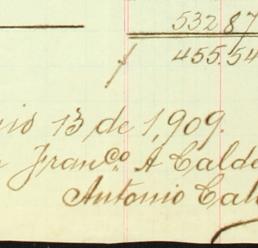 532 87
455.54
nio 13 de 1,909.
Franco. A Calde
Antonio Cal